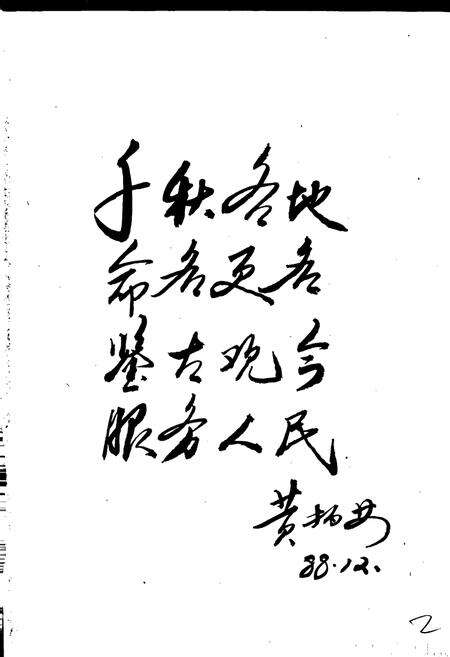 千秋各地
命名更名
鉴古观今
服务人民
黄
88.12.
2